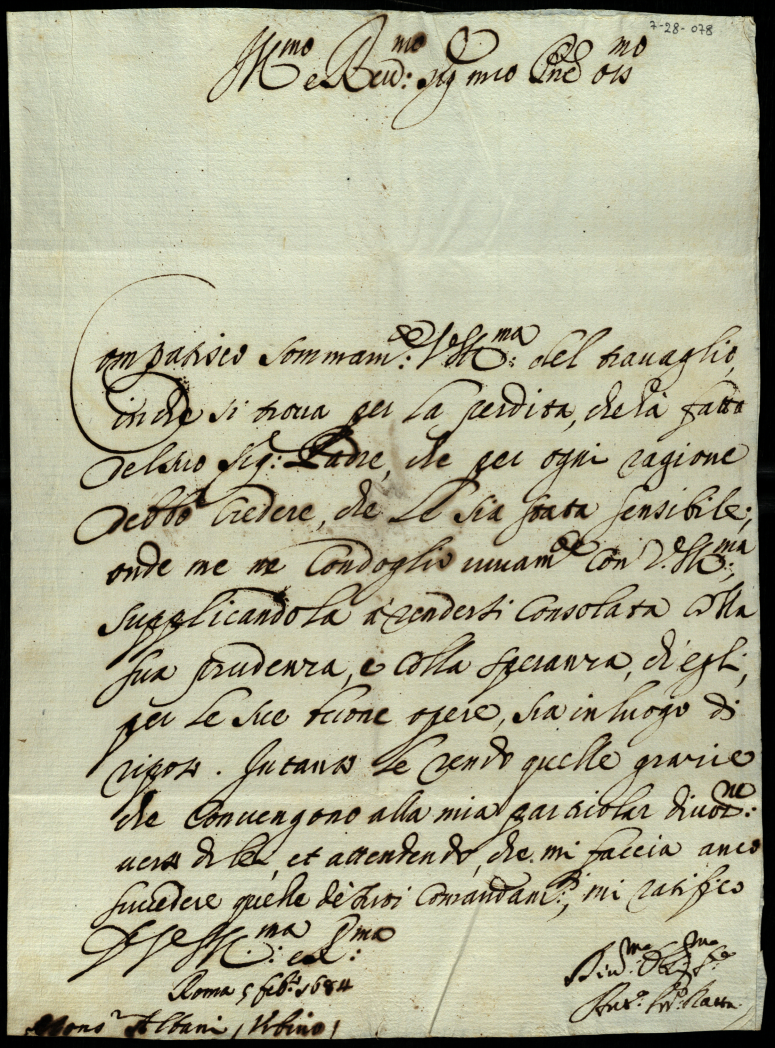 7-28-078
Ill.mo e Reud.mo Sig.r mio Pne Col.mo
Compatisco sommam.te V.S. Ill.ma del trauaglio,
in che si troua per la perdita, che hà fatto
del suo Sig.r Padre, che per ogni ragione
debbo credere, che le sia stata sensibile;
onde me ne condoglio uiuam.te con V.S. Ill.ma,
supplicandola à rendersi consolata colla
sua prudenza, e colla speranza, ch'egli,
per le sue buone opere, sia in luogo di
riposo. Intanto le rendo quelle grazie
che conuengono alla mia particolar diuot.ne
uerso di lei, et attendendo, che mi faccia anco
succedere quelle de' suoi comandam.ti, mi ratifico
Di V.S. Ill.ma e R.ma
Roma 5 feb.ro 1684
Mons.r Albani (Urbino)